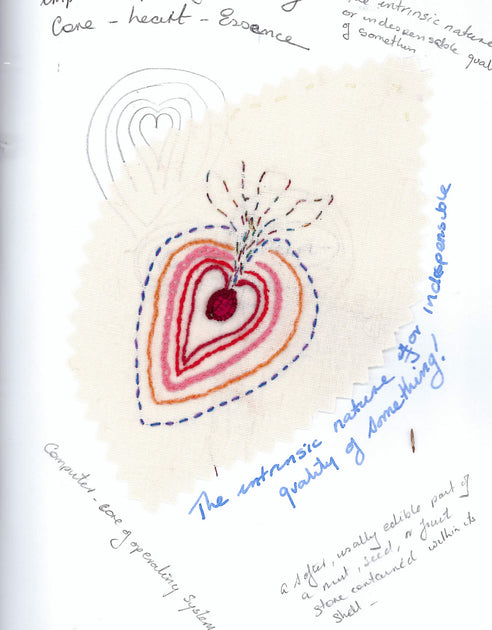 imp
Core - heart - Essence
the intrinsic nature
or indespensable qual
of somethin
The intrinsic nature or indespensible
quality of something!
Computer - core of operating System
a softer, usally edible part of
a nut, seed, or fruit
stone contained within its
Shell -